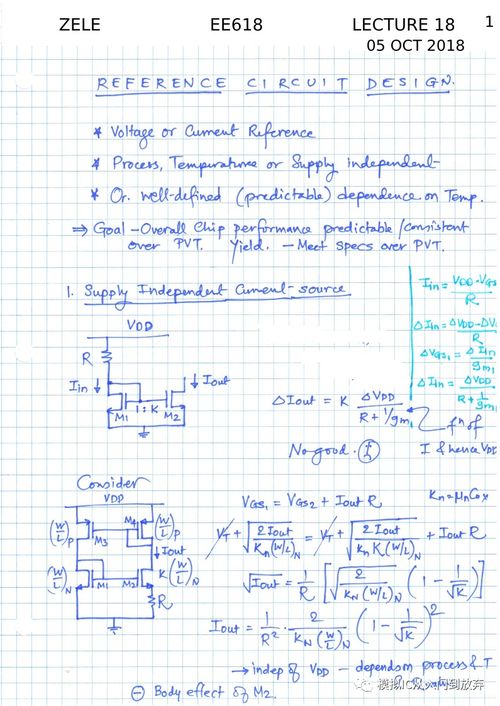 ZELE EE618 LECTURE 18 1
05 OCT 2018
REFERENCE CIRCUIT DESIGN.
* Voltage or Current Reference
* Process, Temperature or Supply independent
* Or. well-defined (predictable) dependence on Temp.
⇒ Goal - Overall Chip performance predictable/consistent
over PVT. Yield. - Meet specs over PVT.
1. Supply Independent Current-source
VDD
R
Iin ↓
↓ Iout
1:K
M1 M2
Iin = (VDD-VGS
R
ΔIin = ΔVDD-ΔV
R
ΔVGS1 = ΔIin
gm1
ΔIin = ΔVDD
R + 1/gm1
ΔIout = K ΔVDD / (R + 1/gm1)
fⁿ of
I & hence VDD
No good.
Consider
VDD
(W/L)P M3 M4 (W/L)P
↓ Iout
(W/L)N M1 M2 K(W/L)N
R
Kn = μnCox
VGS1 = VGS2 + Iout R
VT + √(2Iout / Kn(W/L)N) = VT + √(2Iout / Kn K(W/L)N) + Iout R
√Iout = 1/R [√(2 / KN(W/L)N) (1 - 1/√K)]
Iout = 1/R² · 2 / KN(W/L)N (1 - 1/√K)²
→ indep of VDD - depends on process & T
⊖ Body effect of M2.
模拟IC众人问到放弃